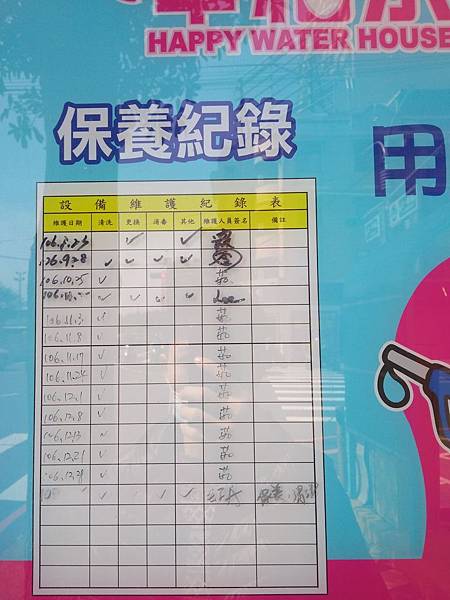 HAPPY WATER HOUSE
保養紀錄
用
設備維護紀錄表
維護日期 清洗 更換 消毒 其他 維護人員簽名 備註
106.9.28 ✓ ✓ ✓ ✓
106.10.25 ✓ 茹
106. ✓ ✓ ✓ ✓
106.11.3 ✓ 茹
106.11.8 ✓ 茹
106.11.17 ✓ 茹
106.11.24 ✓ 茹
106.12.1 ✓ 茹
106.12.8 ✓ 茹
106.12.13 ✓ 茹
106.12.21 ✓ 茹
106.12.31 ✓ 茹
✓ ✓ ✓ 保養